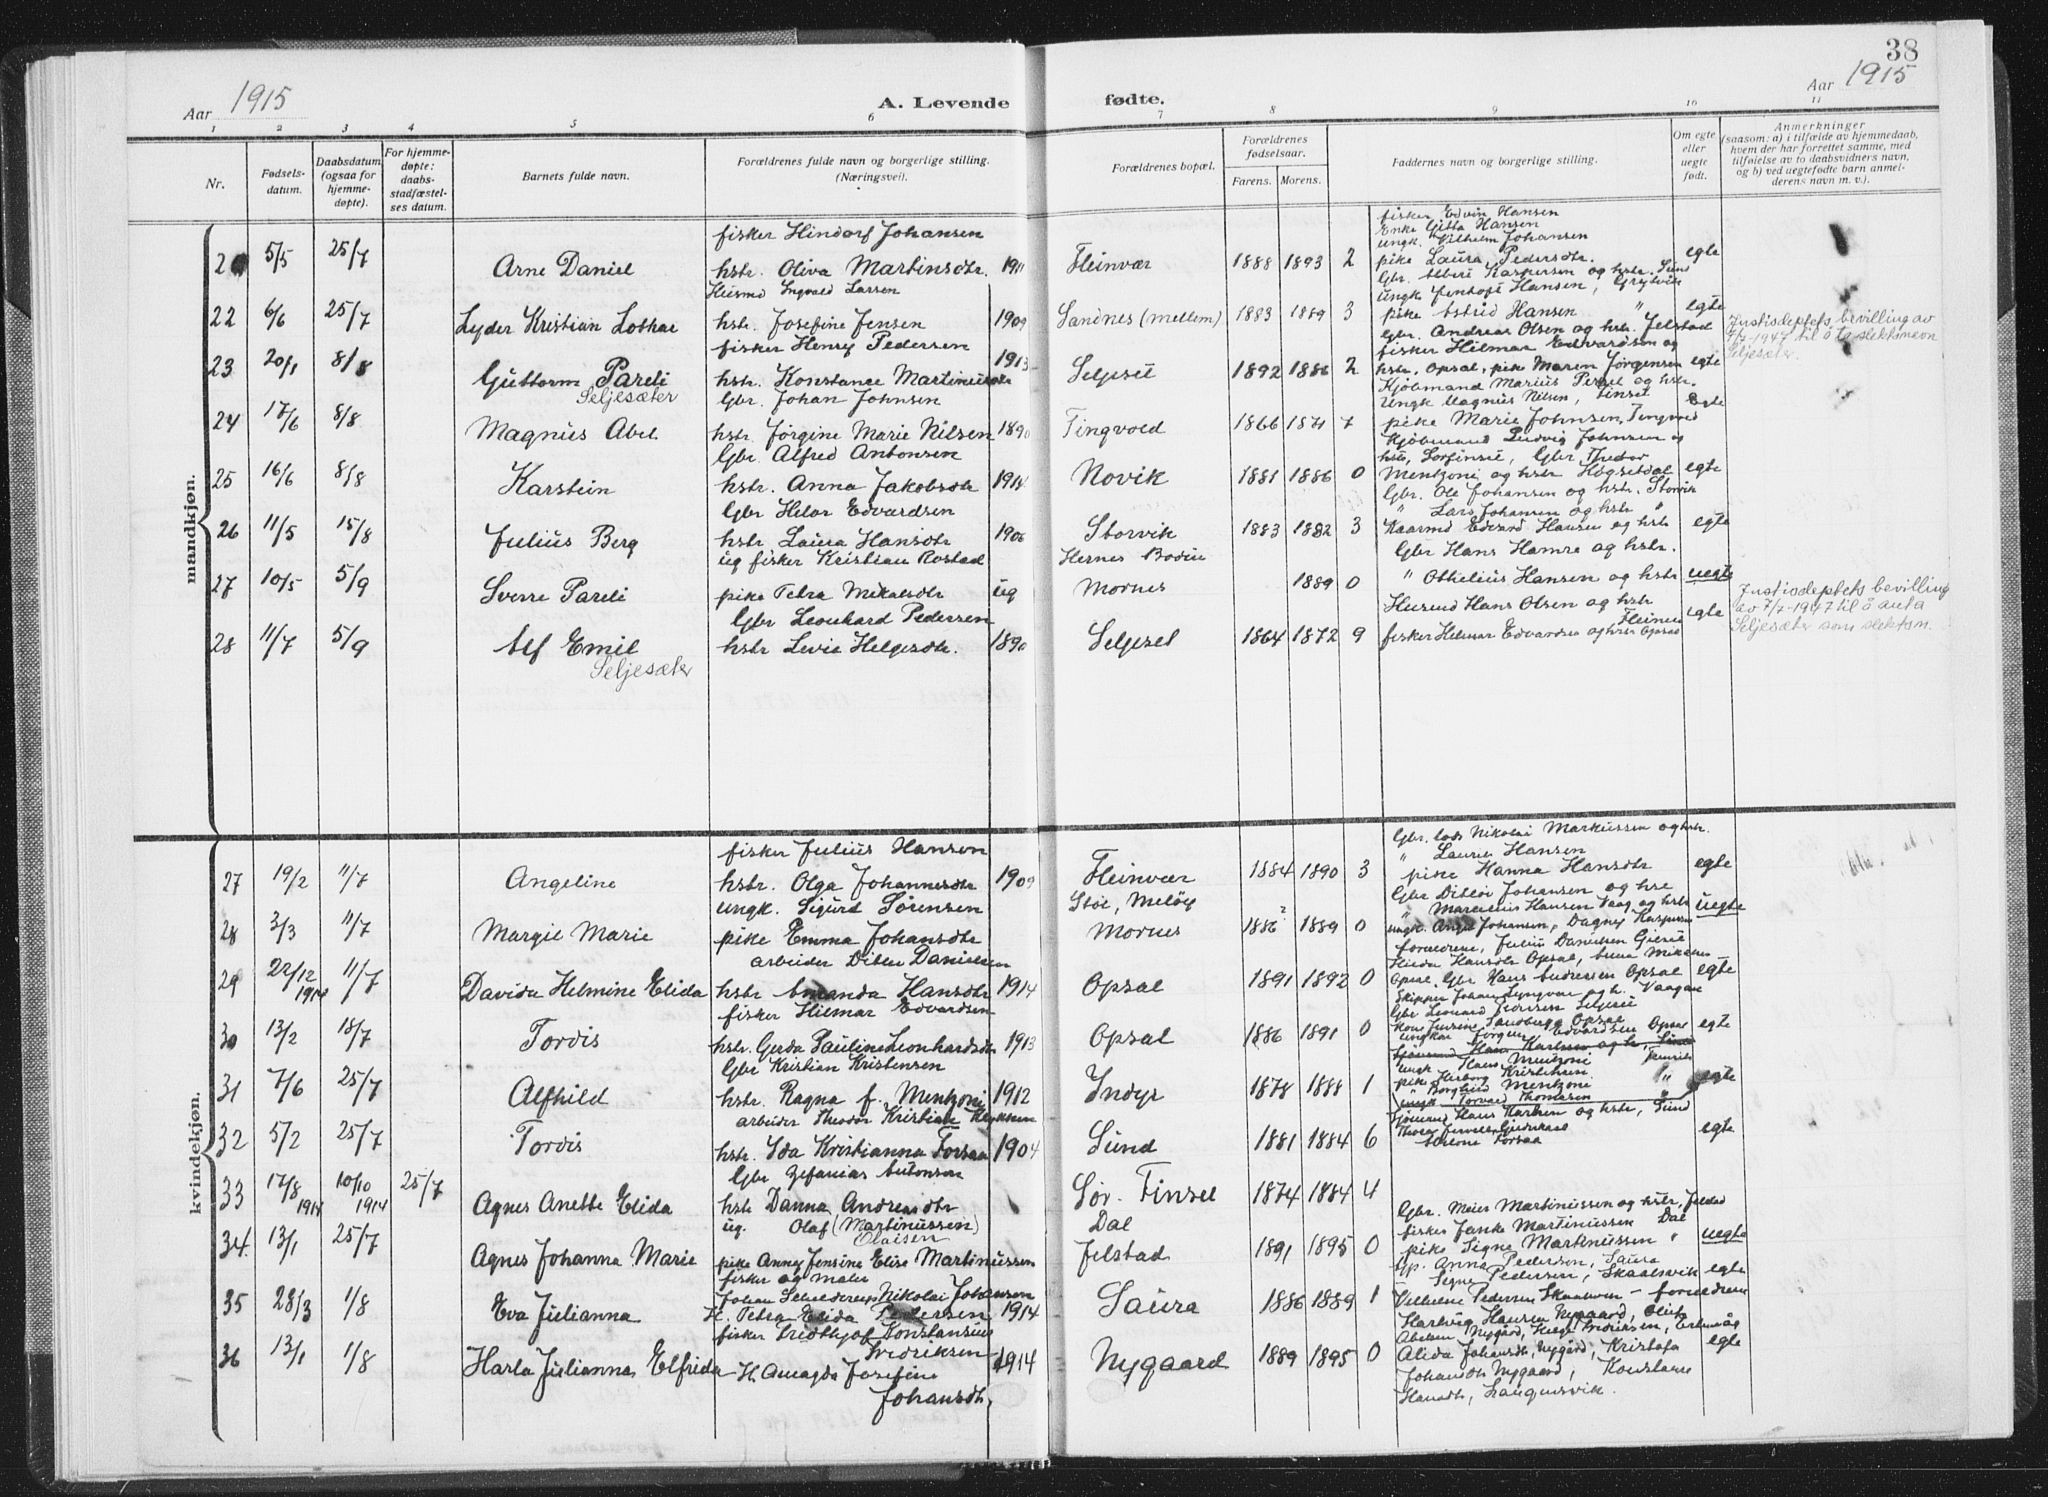 38
Aar 1915
A. Levende fødte.
Aar 1915
1 2 3 4 5 6 7 8 9 10 11
Nr.
Fødsels-
datum.
Daabsdatum
(ogsaa for
hjemme-
døpte).
For hjemme-
døpte:
daabs-
stadfæstel-
ses datum.
Barnets fulde navn.
Forældrenes fulde navn og borgerlige stilling.
(Næringsvei).
Forældrenes bopæl.
Forældrenes
fødselsaar.
Farens. Morens.
Faddernes navn og borgerlige stilling.
Om egte
eller
uegte
født.
Anmerkninger
(saasom: a) i tilfælde av hjemmedaab,
hvem der har forrettet samme, med
tilføielse av to daabsvidners navn,
og b) ved uegtefødte barn anmel-
derens navn m. v.).
mandkjøn.
fisker Hindorf Johansen
fisker Edvin Hansen
Enke Gitta Hansen
ungk. Vilhelm Johansen
2 5/5 25/7 Arne Daniel hstr. Oliva Martinsdtr. 1911 Fleinvær 1888 1893 2 pike Laura Pedersdtr. egte
Husmd Ingvald Larsen
Gbr. Albert Kaspersen og hstr. Sund
ungk Jentoft Hansen, Grytvik
22 6/6 25/7 Lyder Kristian Lothar hstr. Josefine Jensen 1909 Sandnes (mellem) 1883 1889 3 pike Astrid Hansen " egte
Justisdeptets bevilling av
7/7-1947 til å ta slektsnavn
Seljesæter.
fisker Henry Pedersen
Gbr. Andreas Olsen og hstr. Jelstad
fisker Hilmar Edvardsen og
23 20/1 8/8 Guttorm Pareli hstr. Konstance Martinusdtr 1913 Seljeset 1892 1886 2 hstr. Opsal, pike Maren Jørgensen egte
Seljesæter
Gbr. Johan Johnsen
Kjøbmand Marius Persel og hstr.
Ungk Magnus Nilsen, Finset
24 17/6 8/8 Magnus Abel hstr. Jørgine Marie Nilsen 1890 Tingvold 1866 1871 7 pike Marie Johnsen, Tingvold Egte
Gbr. Alfred Antonsen
Kjøbmand Ludvig Johnsen og
hstr, Sorfinset, Gbr. Thedor
25 16/6 8/8 Karstein hstr. Anna Jakobsdtr 1914 Novik 1881 1886 0 Mentzoni og hstr Høgsetdal egte
Gbr Helar Edvardsen
Gbr. Ole Johansen og hstr. Storvik
" Lars Johansen og hstr "
26 11/5 15/8 Julius Berg hstr Laura Hansdtr 1906 Storvik 1883 1882 3 Kaarmd Edvard Hansen og hstr egte
ug fisker Kristian Rostad
Hernes Bodin
Gbr Hans Hamre og hstr.
27 10/5 5/9 Sverre Pareli pike Petra Mikalsdtr ug Mornes 1889 0 " Othelius Hansen og hstr uegte
Gbr Leonhard Pedersen
Husmd Hans Olsen og hstr
Fleines
Justisdeptets bevilling
av 7/7-1947 til å anta
Seljesæter som slektsn.
28 11/7 5/9 Alf Emil hstr Levia Helgesdtr. 1890 Seljeset 1864 1872 9 fisker Helmar Edvardsen og hstr Opsal egte
Seljesæter
kvindekjøn.
fisker Julius Hansen
Gbr. lods Nikolai Markussen og hstr.
" Laurits Hansen
27 19/2 11/7 Angeline hstr. Olga Johannesdtr 1909 Fleinvær 1884 1890 3 pike Hanna Hansdtr egte
ungk. Sigurd Sørensen
Støt, Meløy
Gbr Ditlev Johansen og hstr
" Marcelius Hansen Vaag og hstr
28 3/3 11/7 Margit Marie pike Emma Johansdtr Mornes 1886 1889 0 ungk. Johansen, Dagny Kaspersen uegte
arbeider Ditlev Danielsen
forældrene, Julius Danielsen Gjerset
Hilda Hansdtr Opsal,
29 22/12 1914 11/7 Davida Helmine Elida hstr Amanda Hansdtr 1914 Opsal 1891 1892 0 Opsal, Gbr Hans Andreassen Opsal egte
fisker Hilmar Edvardsen
Skipper Johan Lyngvær og h. Vaagan
Gbr Leonard Pedersen Seljeset
30 13/2 18/7 Tordis hstr. Gerda Pauline Leonhardsdtr 1913 Opsal 1886 1891 0 ungkar Jørgen Edvardsen Opsal egte
Gbr Kristian Kristensen
ungk Hans Mentzoni
31 7/6 25/7 Alfhild hstr. Ragna f. Mentzoni 1912 Indyr 1878 1888 1 pike Borghild Mentzoni " egte
ungk Torvald Thomassen
arbeider Theodor Kristian
Gjøsund Hans Karlsen og hstr, Sund
32 5/2 25/7 Tordis hstr. Ida Kristianna Forsaa 1904 Sund 1881 1884 6 Antone Forsaa egte
Gbr Zefanias Antonsen
33 17/8 1914 10/10 1914 25/7 Agnes Anette Elida hstr Danna Andreasdtr Sør. Finset 1874 1884 4
ug. Olaf (Martinussen)
Olaisen
Dal
Gbr. Meier Martinussen og hstr, Jelstad
fisker Jenke Martinussen Dal
34. 13/1 25/7 Agnes Johanna Marie pike Anna Jensine Elise Martinussen Jelstad 1891 1895 0 pike Signe Martinussen " uegte
fisker og maler
Gp. Anna Pedersen, Saura
Signe Pedersen, Skaalsvik
35 28/3 1/8 Eva Julianna Nikolai Johansen
H. Petra Elida Pedersen 1914 Saura 1886 1889 1 Vilhelm Pedersen Skaalsvik – forældrene egte
fisker Fridthjof Konstansius
Fredriksen
Hartvig Hansen Nygaard, Oluf
Abelsen Nygård, Helge Fredriksen,
36 13/1 1/8 Harla Julianna Elfrida H. Amagda Josefine 1914 Nygaard 1889 1895 0 Alida Johansdtr, Nygård, Kristofa egte
Johansdtr.
Johansdtr Nygaard, Konstanse
Hansdtr, Laugensvik.